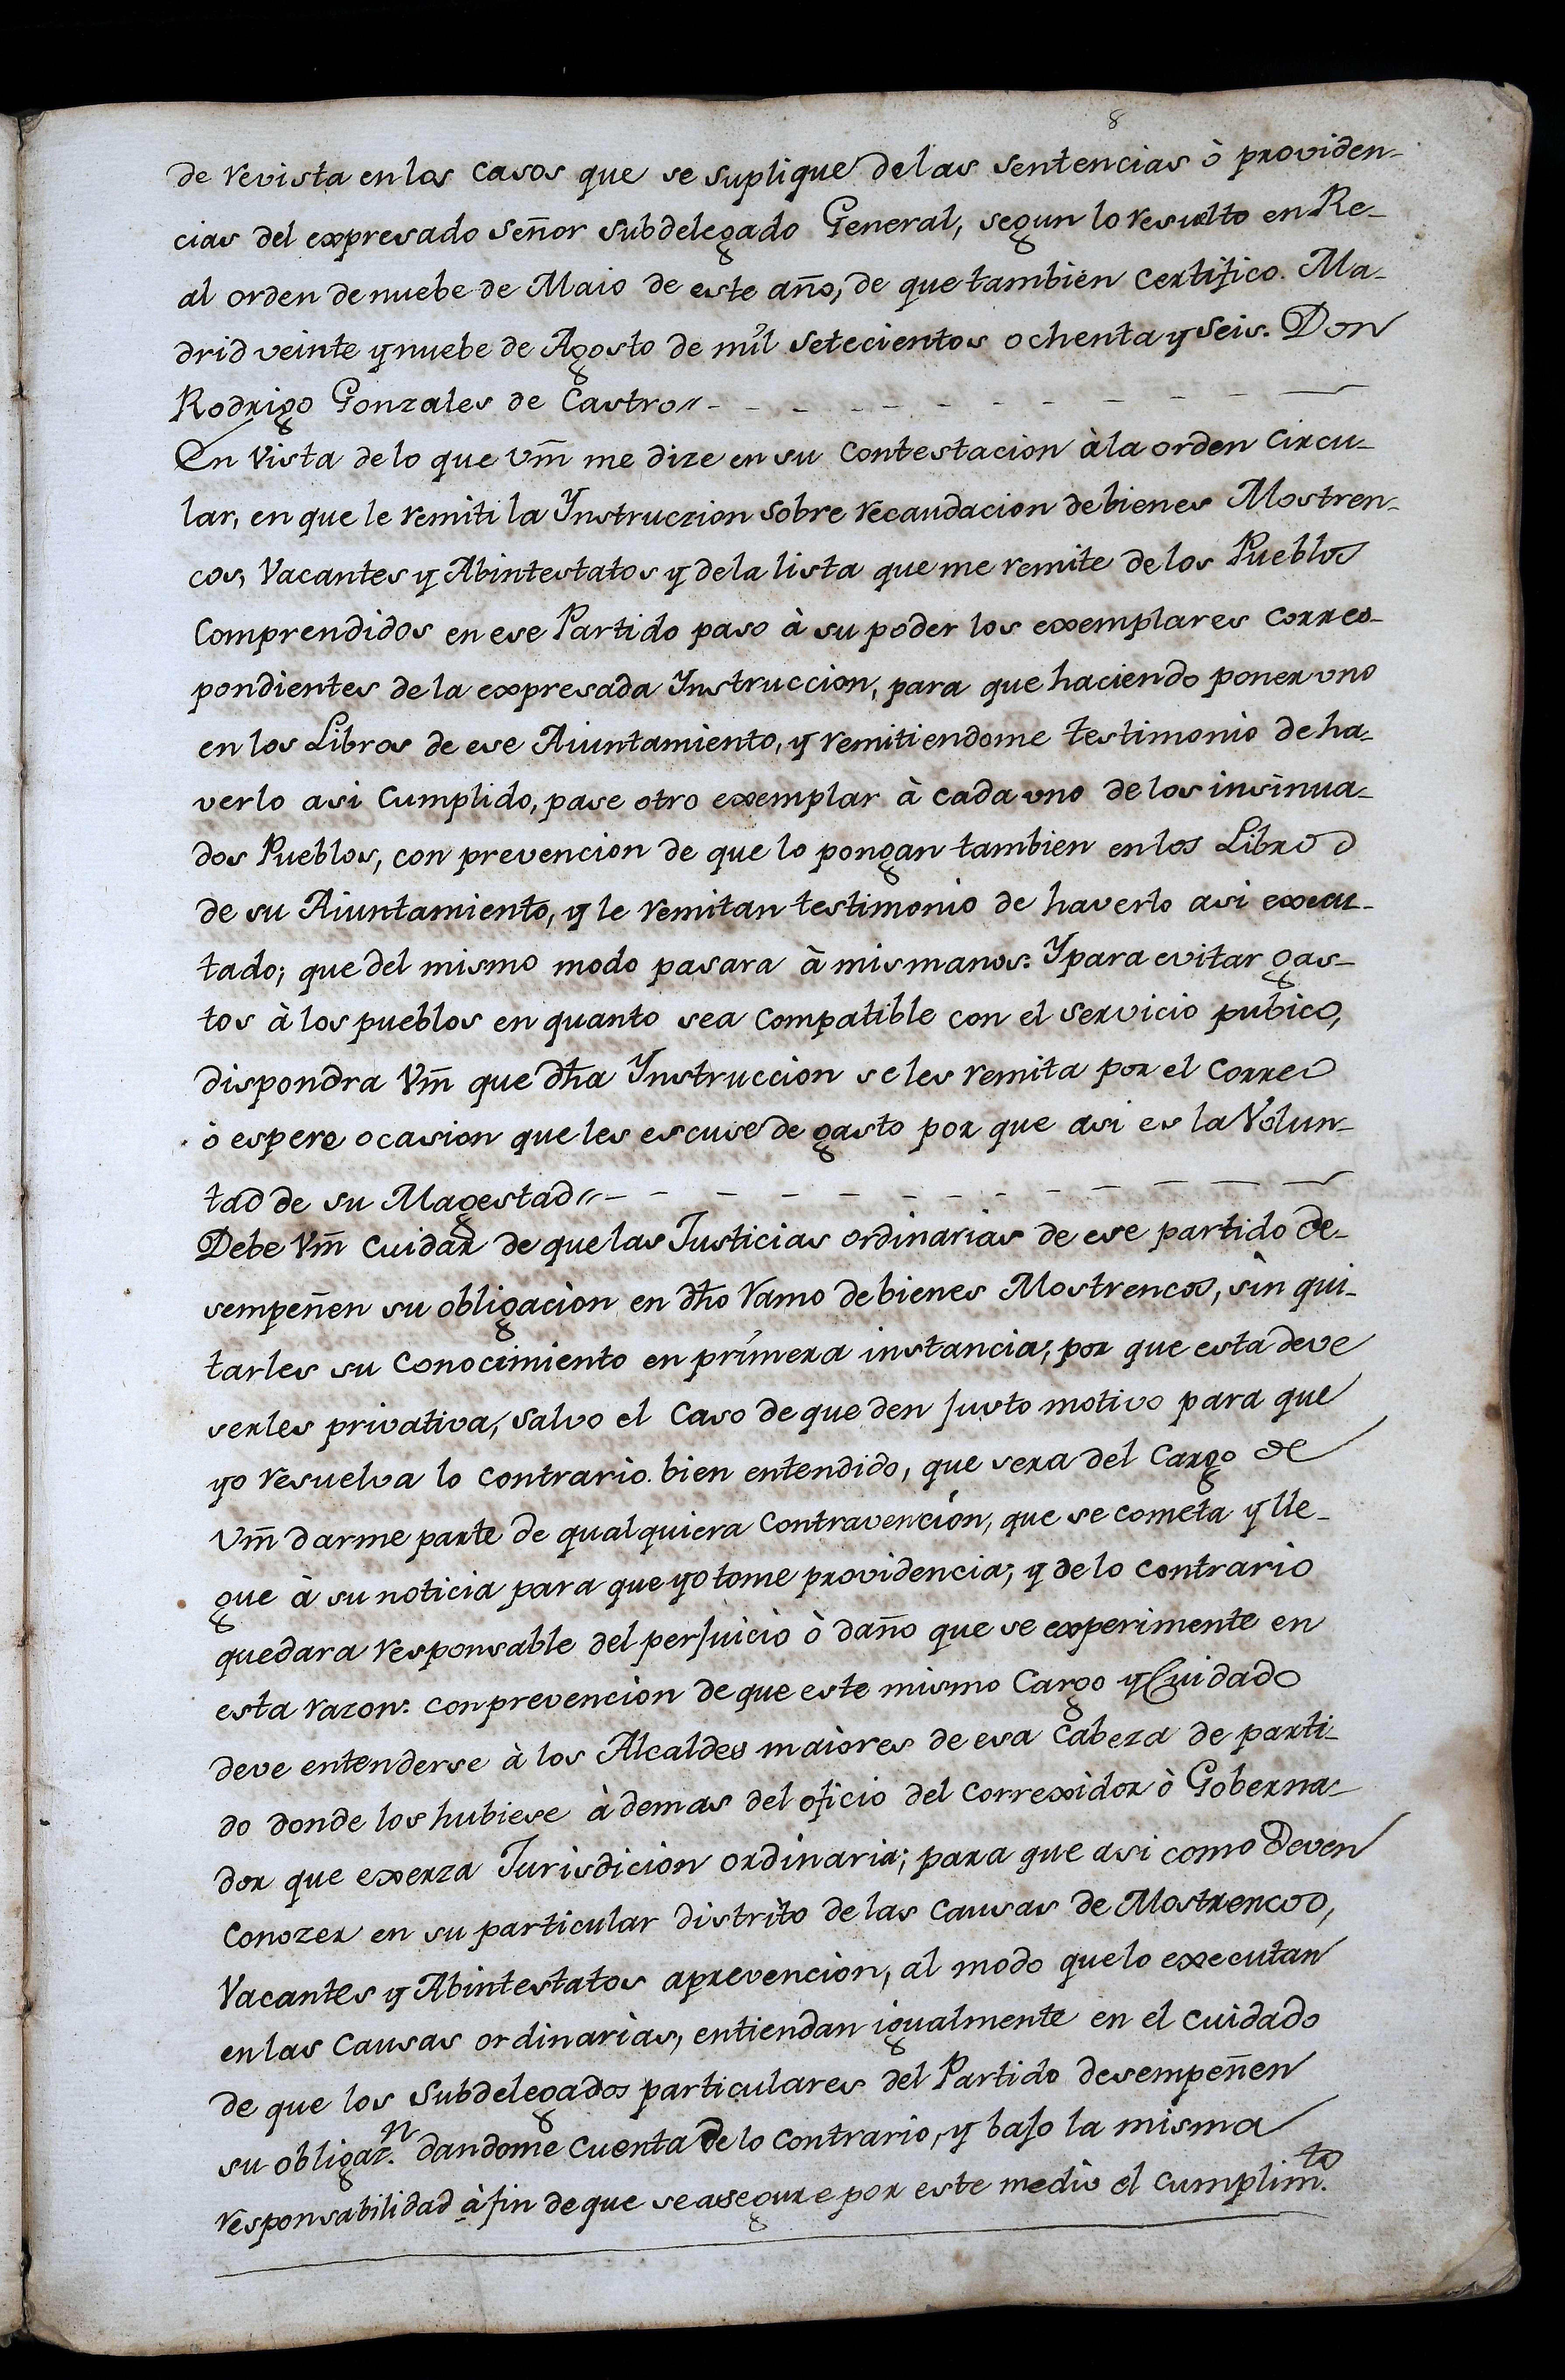 8
de revista en los casos que se suplique de las sentencias ò providen-
cias del expresado señor subdelegado General, segun lo resuelto en Re-
al orden de nuebe de Maio de este año, de que tambien certifico. Ma-
drid veinte y nuebe de Agosto de mil setecientos ochenta y seis. Don
Rodrigo Gonzales de Castro//- - - - - - - - - - - -
En vista de lo que Vm̃ me dize en su contestacion à la orden circu-
lar, en que le remiti la Ynstruczion sobre recaudacion de bienes Mostren-
cos, Vacantes y Abintestatos y de la lista que me remite de los Pueblos
Comprendidos en ese Partido paso à su poder los exemplares corres-
pondientes de la expresada Ynstruccion, para que haciendo poner uno
en los Libros de ese Aiuntamiento, y remitiendome testimonio de ha-
verlo asi cumplido, pase otro exemplar à cada uno de los insinua-
dos Pueblos, con prevencion de que lo pongan tambien en los Libros
de su Aiuntamiento, y le remitan testimonio de haverlo asi execu-
tado; que del mismo modo pasara à mis manos: Y para evitar gas-
tos à los pueblos en quanto sea compatible con el servicio pubico,
dispondra Vm̃ que dh̃a Ynstruccion se les remita por el correo
ò espere ocasion que les escuse de gasto por que asi es la Volun-
tad de su Magestad//- - - - - - - - - - - -
Debe Vm̃ cuidar de que las Justicias ordinarias de ese partido de-
sempeñen su obligacion en dh̃o ramo de bienes Mostrencos, sin qui-
tarles su conocimiento en primera instancia; por que esta deve
serles privativa, salvo el caso de que den justo motivo para que
yo resuelva lo contrario. bien entendido, que sera del cargo de
Vm̃ darme parte de qualquiera contravencion, que se cometa y lle-
gue à su noticia para que yo tome providencia; y de lo contrario
quedara responsable del perjuicio ò daño que se experimente en
esta razon: con prevencion de que este mismo cargo y Cuidado
deve entenderse à los Alcaldes maiores de esa cabeza de parti-
do donde los hubiese à demas del oficio del correxidor ò Goberna-
dor que exerza Jurisdicion ordinaria; para que asi como deven
conozer en su particular distrito de las causas de Mostrencos,
Vacantes y Abintestatos aprevencion, al modo que lo executan
en las causas ordinarias, entiendan igualmente en el cuidado
de que los subdelegados particulares del Partido desempeñen
su obligaz.n dandome cuenta de lo contrario, y bajo la misma
responsabilidad à fin de que se asegure por este medio el cumplim.to